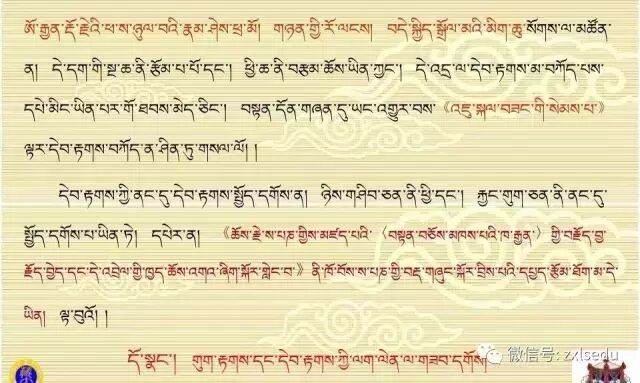 ཨོ་རྒྱན་རྡོ་རྗེའི་ཕ་ས་ཉུལ་བའི་རྣམ་ཤེས་ཕྲ་མོ། གཉན་གྱི་རོ་ལངས། བདེ་སྐྱིད་སྒྲོལ་མའི་མིག་ཆུ་སོགས་ལ་མཚོན་
ན། དེ་དག་གི་སྔ་ཆ་ནི་རྩོམ་པ་པོ་དང་། ཕྱི་ཆ་ནི་བརྩམ་ཆོས་ཡིན་ཀྱང་། དེ་འདྲ་ལ་དེབ་རྟགས་མ་བཀོད་པས་
དཔེ་མིང་ཡིན་པར་གོ་ཐབས་མེད་ཅིང་། བསྟན་དོན་གཞན་དུ་ཡང་འགྱུར་བས་《འཇུ་སྐལ་བཟང་གི་སེམས་པ་》
ལྟར་དེབ་རྟགས་བཀོད་ན་ཤིན་ཏུ་གསལ་ལོ། །
དེབ་རྟགས་ཀྱི་ནང་དུ་དེབ་རྟགས་སྤྱོད་དགོས་ན། ཉིས་གཤིབ་ཅན་ནི་ཕྱི་དང་། རྐྱང་གུག་ཅན་ནི་ནང་དུ་
སྤྱོད་དགོས་པ་ཡིན་ཏེ། དཔེར་ན།《ཆོས་རྗེ་ས་པཎ་གྱིས་མཛད་པའི་〈བསྟན་བཅོས་མཁས་པའི་ཁ་རྒྱན་〉གྱི་བརྗོད་བྱ་
རྗོད་བྱེད་དང་དེ་འབྲེལ་གྱི་ཁྱད་ཆོས་འགའ་ཞིག་སྐོར་གླེང་བ་》ནི་ཁོ་བོས་ས་པཎ་གྱི་བརྡ་གཞུང་སྐོར་བྲིས་པའི་དཔྱད་རྩོམ་ཐོག་མ་དེ་
ཡིན། ལྟ་བུའོ། །
དོ་སྣང་། གུག་རྟགས་དང་དེབ་རྟགས་ཀྱི་ལག་ལེན་ལ་གཟབ་དགོས།
微信号: zxlsedu